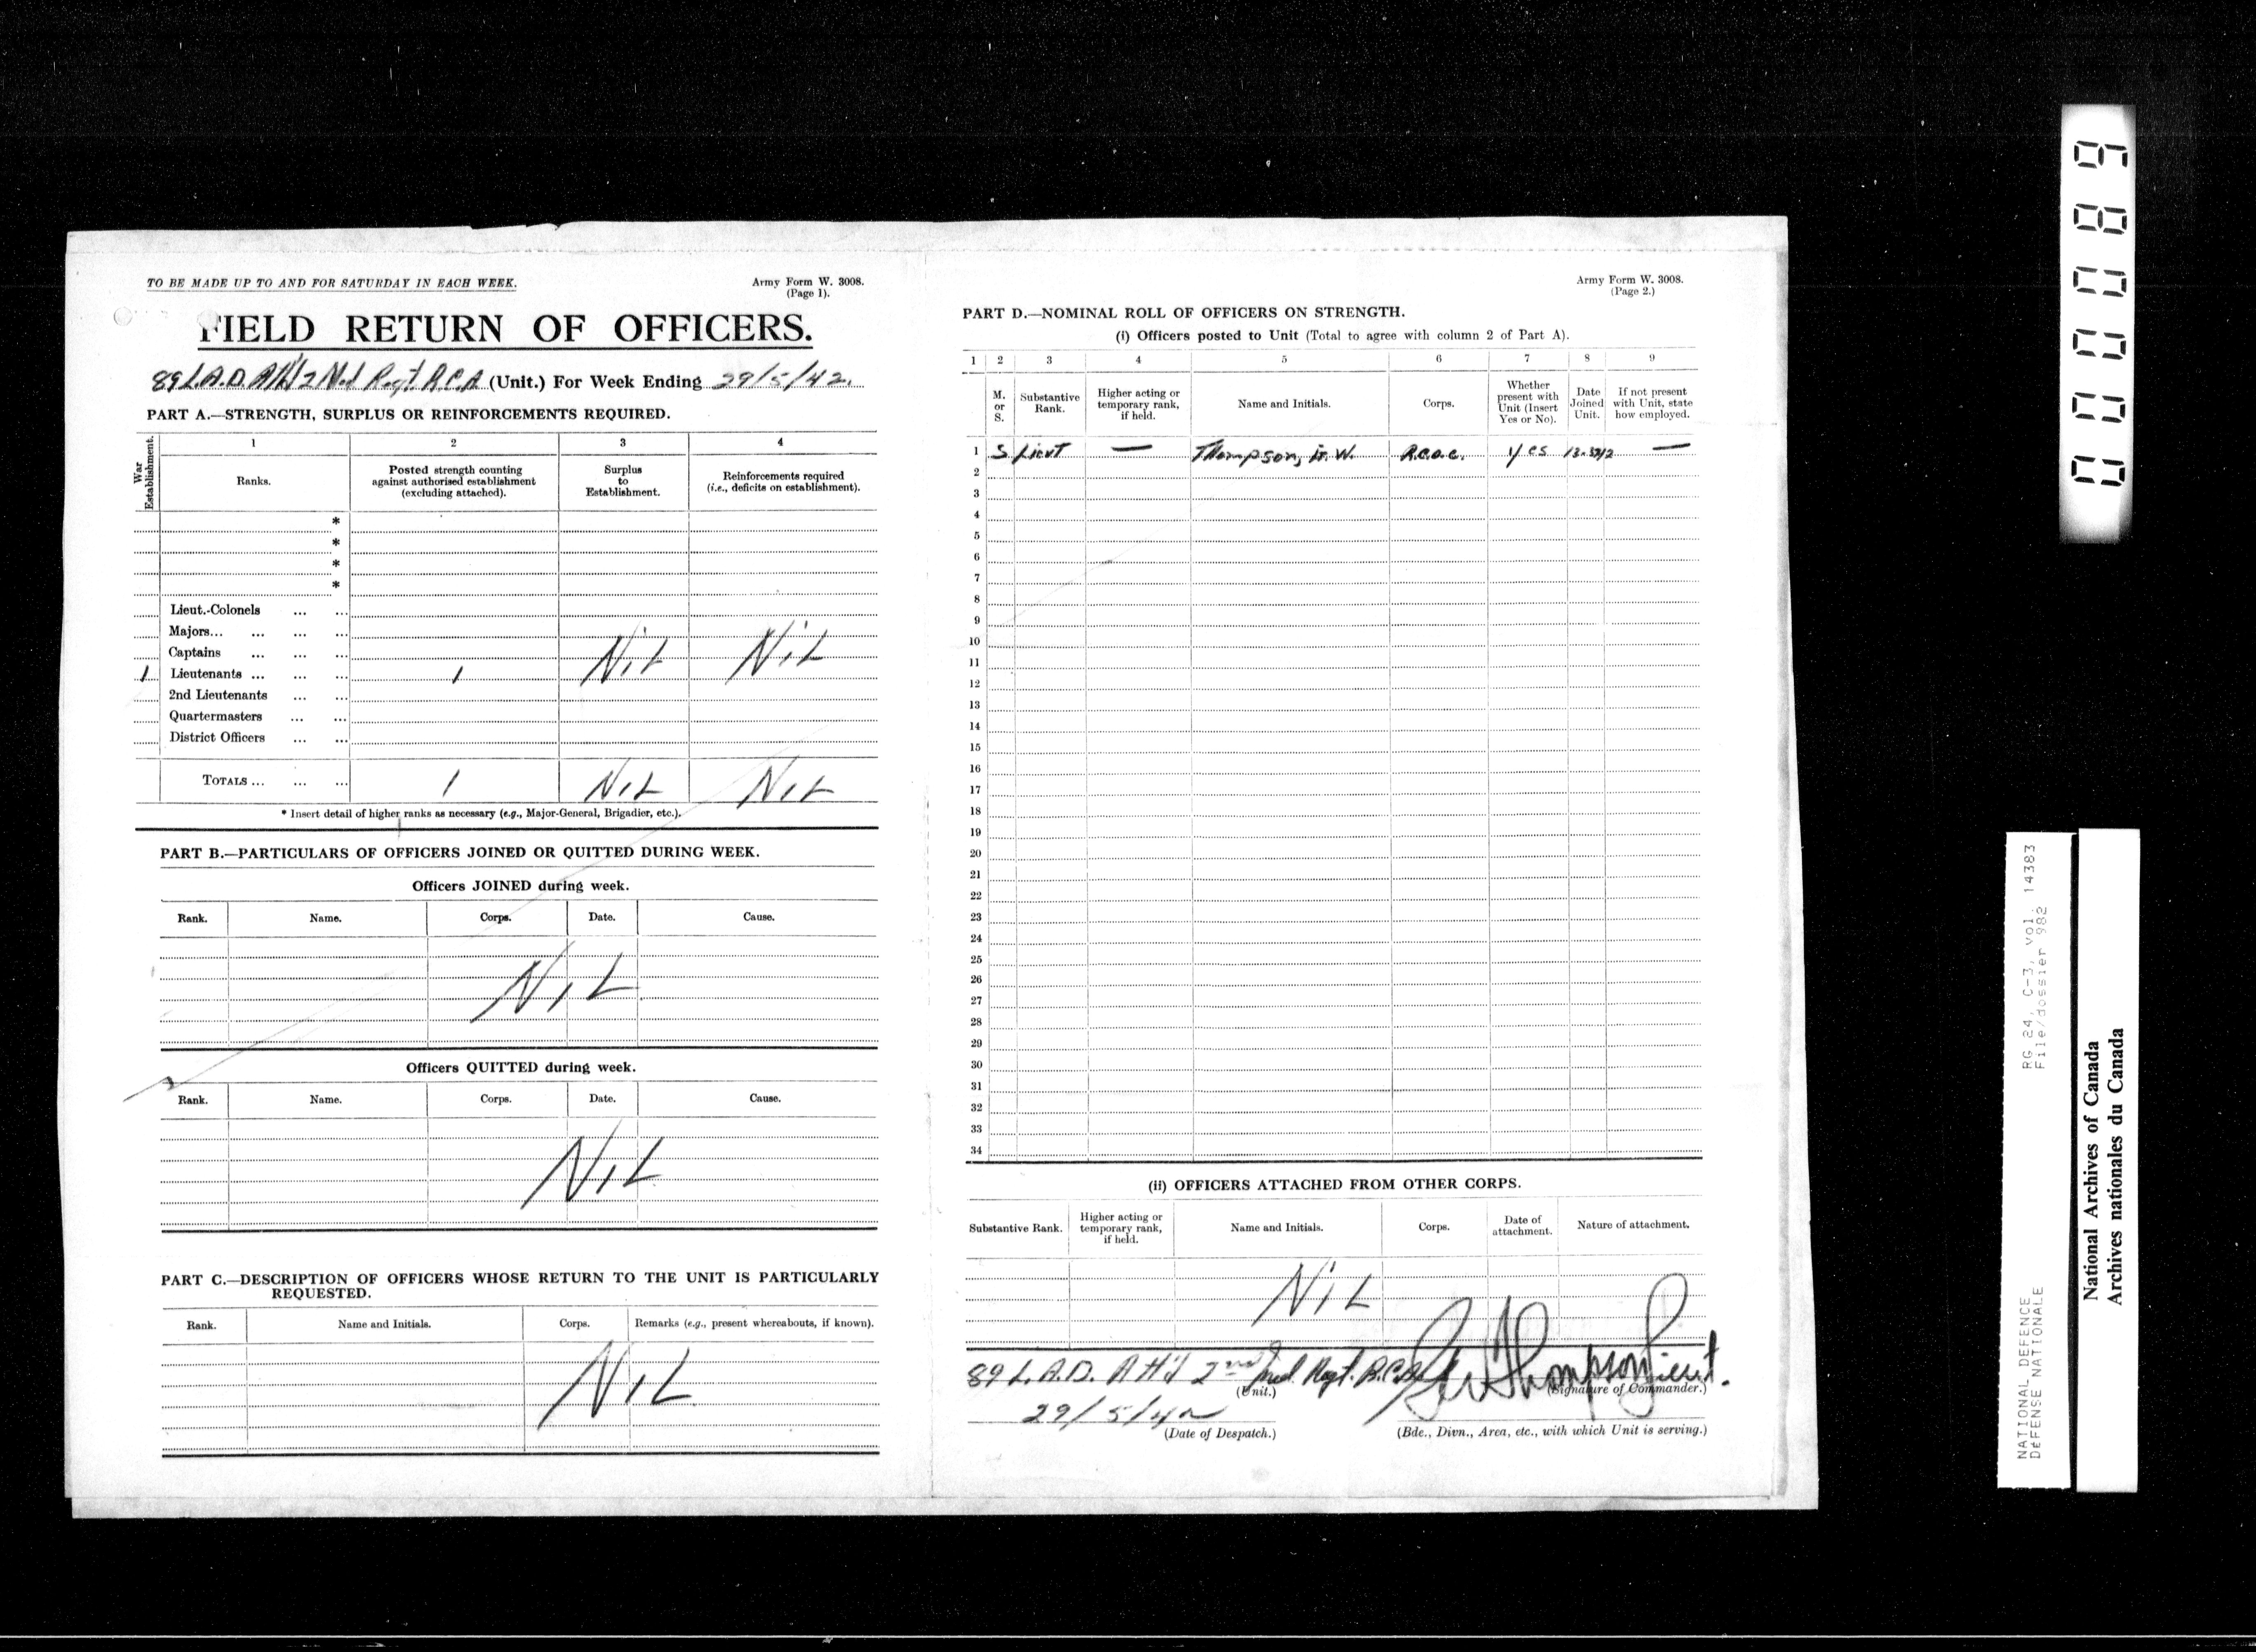 TO BE MADE UP TO AND FOR SATURDAY IN EACH WEEK.
Army Form W. 3008.
(Page 1).
FIELD RETURN OF OFFICERS.
89 L.A.D. Att'd 2 Med Regt. R.C.A. (Unit.) For Week Ending 29/5/42.
PART A.—STRENGTH, SURPLUS OR REINFORCEMENTS REQUIRED.
War Establishment.
1 2 3 4
Ranks. Posted strength counting against authorised establishment (excluding attached). Surplus to Establishment. Reinforcements required (i.e., deficits on establishment).
*
*
*
*
Lieut.-Colonels ... ...
Majors... ... ... ...
Captains ... ... ... Nil Nil
1 Lieutenants ... ... ... 1
2nd Lieutenants ... ...
Quartermasters ... ...
District Officers ... ...
TOTALS ... ... ... 1 Nil Nil
* Insert detail of higher ranks as necessary (e.g., Major-General, Brigadier, etc.).
PART B.—PARTICULARS OF OFFICERS JOINED OR QUITTED DURING WEEK.
Officers JOINED during week.
Rank. Name. Corps. Date. Cause.
Nil
Officers QUITTED during week.
Rank. Name. Corps. Date. Cause.
Nil
PART C.—DESCRIPTION OF OFFICERS WHOSE RETURN TO THE UNIT IS PARTICULARLY
REQUESTED.
Rank. Name and Initials. Corps. Remarks (e.g., present whereabouts, if known).
Nil
Army Form W. 3008.
(Page 2.)
PART D.—NOMINAL ROLL OF OFFICERS ON STRENGTH.
(i) Officers posted to Unit (Total to agree with column 2 of Part A).
1 2 3 4 5 6 7 8 9
M. or S. Substantive Rank. Higher acting or temporary rank, if held. Name and Initials. Corps. Whether present with Unit (Insert Yes or No). Date Joined Unit. If not present with Unit, state how employed.
1 S Lieut — Thompson, W. R.C.O.C. Yes —
2
3
4
5
6
7
8
9
10
11
12
13
14
15
16
17
18
19
20
21
22
23
24
25
26
27
28
29
30
31
32
33
34
(ii) OFFICERS ATTACHED FROM OTHER CORPS.
Substantive Rank. Higher acting or temporary rank, if held. Name and Initials. Corps. Date of attachment. Nature of attachment.
Nil
89 L.A.D. Att'd 2nd Med. Regt. R.C.A. Thompson Lieut.
(Unit.) (Signature of Commander.)
29/5/42
(Date of Despatch.) (Bde., Divn., Area, etc., with which Unit is serving.)
00000089
RG 24, C-3, vol. 14383
File/dossier 982
NATIONAL DEFENCE
DÉFENSE NATIONALE
National Archives of Canada
Archives nationales du Canada